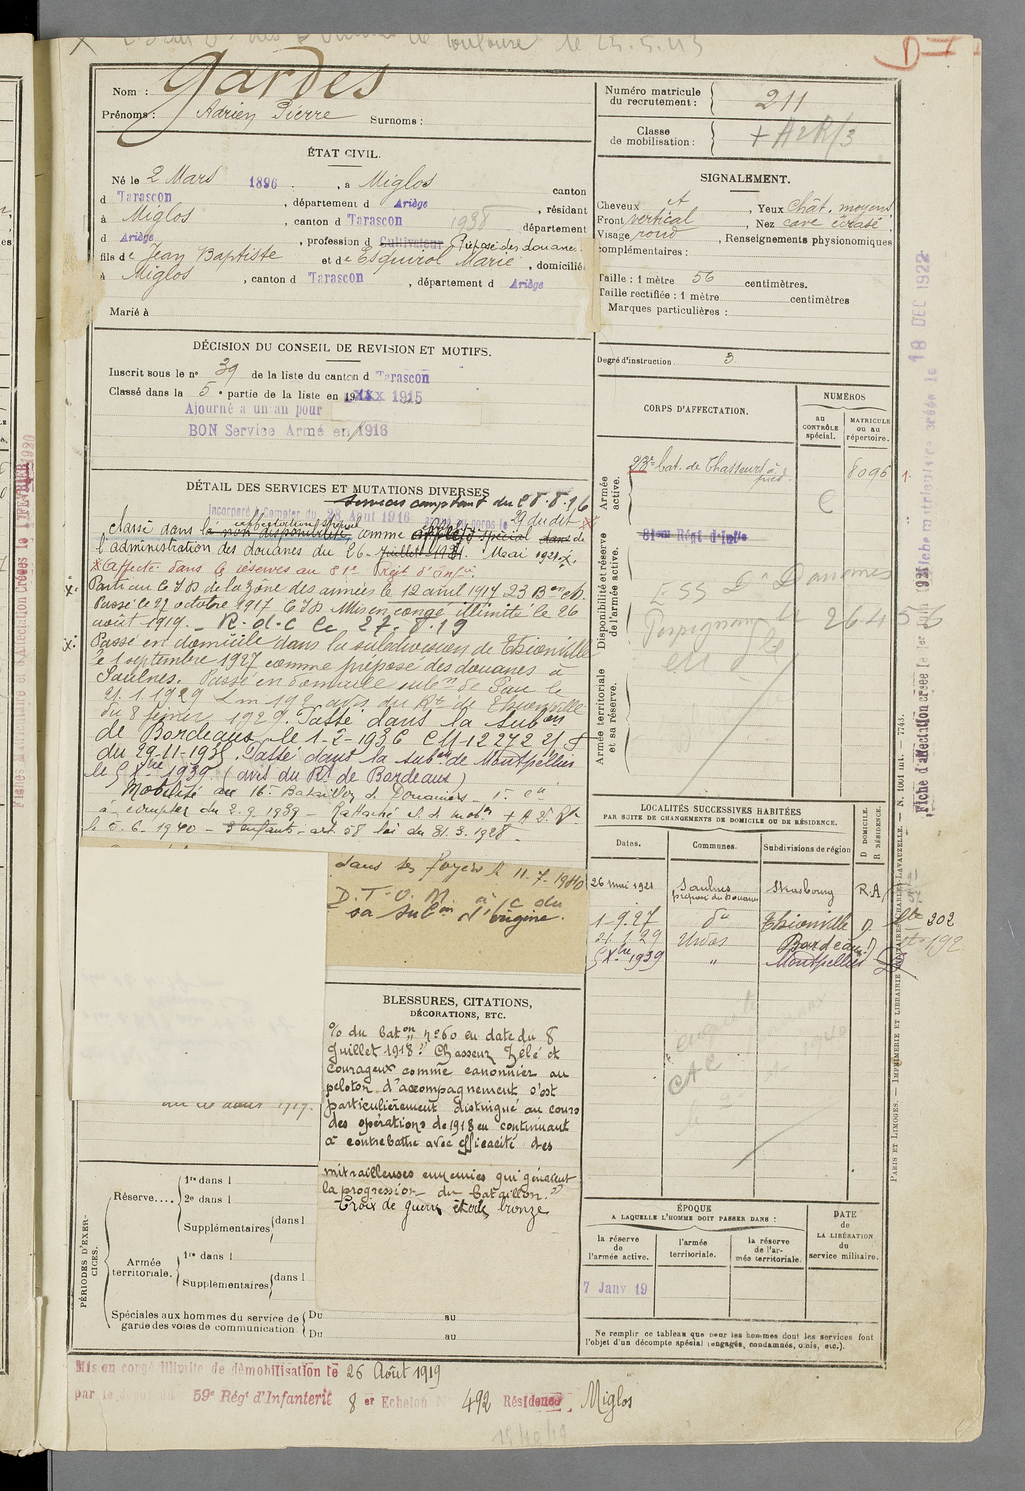 de Toulouse le 25.5.43
Nom : Gardes
Prénoms : Adrien Pierre Surnoms :
ÉTAT CIVIL.
Né le 2 Mars 1896, à Miglos canton
d Tarascon, département d Ariège, résidant
à Miglos, canton d Tarascon 1938 département
d Ariège, profession d Cultivateur Préposé des douanes
fils de Jean Baptiste et de Esquirol Marie, domiciliés
à Miglos, canton d Tarascon, département d Ariège
Marié à
DÉCISION DU CONSEIL DE REVISION ET MOTIFS.
Inscrit sous le no 39 de la liste du canton d Tarascon
Classé dans la 5e partie de la liste en 1915
Ajourné a un an pour
BON Service Armé en 1916
DÉTAIL DES SERVICES ET MUTATIONS DIVERSES
services comptant du 28.8.16
Incorporé à compter du 28 Août 1916 au corps le 29 du dit
classé dans la non disponibilité affectation spéciale comme appelé spécial dans de
l'administration des douanes du 26 Juillet 1921. Mai 1921.
Affecté dans les réserves au 81e Régt d'Infie
Parti au C I D de la zône des armées le 12 avril 1917 23 Bon ch.
Passé le 27 octobre 1917 C I D Mis en congé illimité le 26
août 1919. R.d.c le 27.8.19
Passé en domicile dans la subdivision de Thionville
le 1 septembre 1927 comme préposé des douanes à
Saulnes. Passé en domicile subon de Pau le
21.1.1929 Lm 192 avis du Rt de Thionville
du 8 février 1929. Passé dans la subon
de Bordeaux le 1-2-1936 CM 12272 2/S
du 29-11-1935. Passé dans la subon de Montpellier
le 5 Xbre 1939 (avis du Rt de Bordeaux)
Mobilisé au 16e Bataillon d. Douaniers - 1e Cie
à compter du 2.9.1939 - Rattaché cl. de mobon + A 2e R/3
le 5.6.1940 - 3 enfants - art. 58 loi du 31.3.1928
dans ses foyers le 11-7-1940
D.T.O.M. à/c du
sa subon d'origine.
août 1919.
BLESSURES, CITATIONS,
DÉCORATIONS, ETC.
% du Baton no 60 en date du 8
Juillet 1918: "Chasseur zélé et
courageux comme canonnier au
peloton d'accompagnement s'est
particulièrement distingué au cours
des opérations de 1918 en continuant
à contrebattre avec efficacité des
mitrailleuses ennemies qui gênaient
la progression du bataillon."
Croix de guerre étoile bronze
PÉRIODES D'EXERCICES.
Réserve.... 1re dans l
2e dans l
Supplémentaires dans l
Armée territoriale. 1re dans l
Supplémentaires dans l
Spéciales aux hommes du service de garde des voies de communication Du au
Du au
Mis en congé illimité de démobilisation le 26 Août 1919
par le dépôt du 59e Régt d'Infanterie 8er Echelon No 492 Résidence Miglos
Numéro matricule
du recrutement : 211
Classe
de mobilisation : + A 2e R/3
SIGNALEMENT.
Cheveux , Yeux chât. moyens
Front vertical, Nez cave écrasé
Visage rond, Renseignements physionomiques
complémentaires :
Taille : 1 mètre 56 centimètres.
Taille rectifiée : 1 mètre centimètres
Marques particulières :
Degré d'instruction 3
CORPS D'AFFECTATION.
NUMÉROS
au CONTRÔLE spécial.
MATRICULE ou au répertoire.
Armée active.
23e Bat. de Chasseurs à pied 8096
C
Disponibilité et réserve de l'armée active.
81eme Régt d'Infie
Don Douanes
Perpignan le 26.4.5
Armée territoriale et sa réserve.
LOCALITÉS SUCCESSIVES HABITÉES
PAR SUITE DE CHANGEMENTS DE DOMICILE OU DE RÉSIDENCE.
Dates. Communes. Subdivisions de région D DOMICILE. R RÉSIDENCE.
26 mai 1921 Saulnes préposé des Douanes Strasbourg R.A
1-9.27 do Thionville D. 302
21.1.29 Urdos Bordeaux D 192
5 Xbre 1939 " Montpellier D
ÉPOQUE
A LAQUELLE L'HOMME DOIT PASSER DANS :
la réserve de l'armée active. l'armée territoriale. la réserve de l'armée territoriale.
DATE de LA LIBÉRATION du service militaire.
7 Janv 19
Ne remplir ce tableau que pour les hommes dont les services font
l'objet d'un décompte spécial (engagés, condamnés, omis, etc.).
PARIS ET LIMOGES. — IMPRIMERIE ET LIBRAIRIE MILITAIRES CHARLES-LAVAUZELLE. — N. 1001 int. — 7743.
Fiche matriculaire créée le 18 DEC 1922
Fiche d'affectation créée le